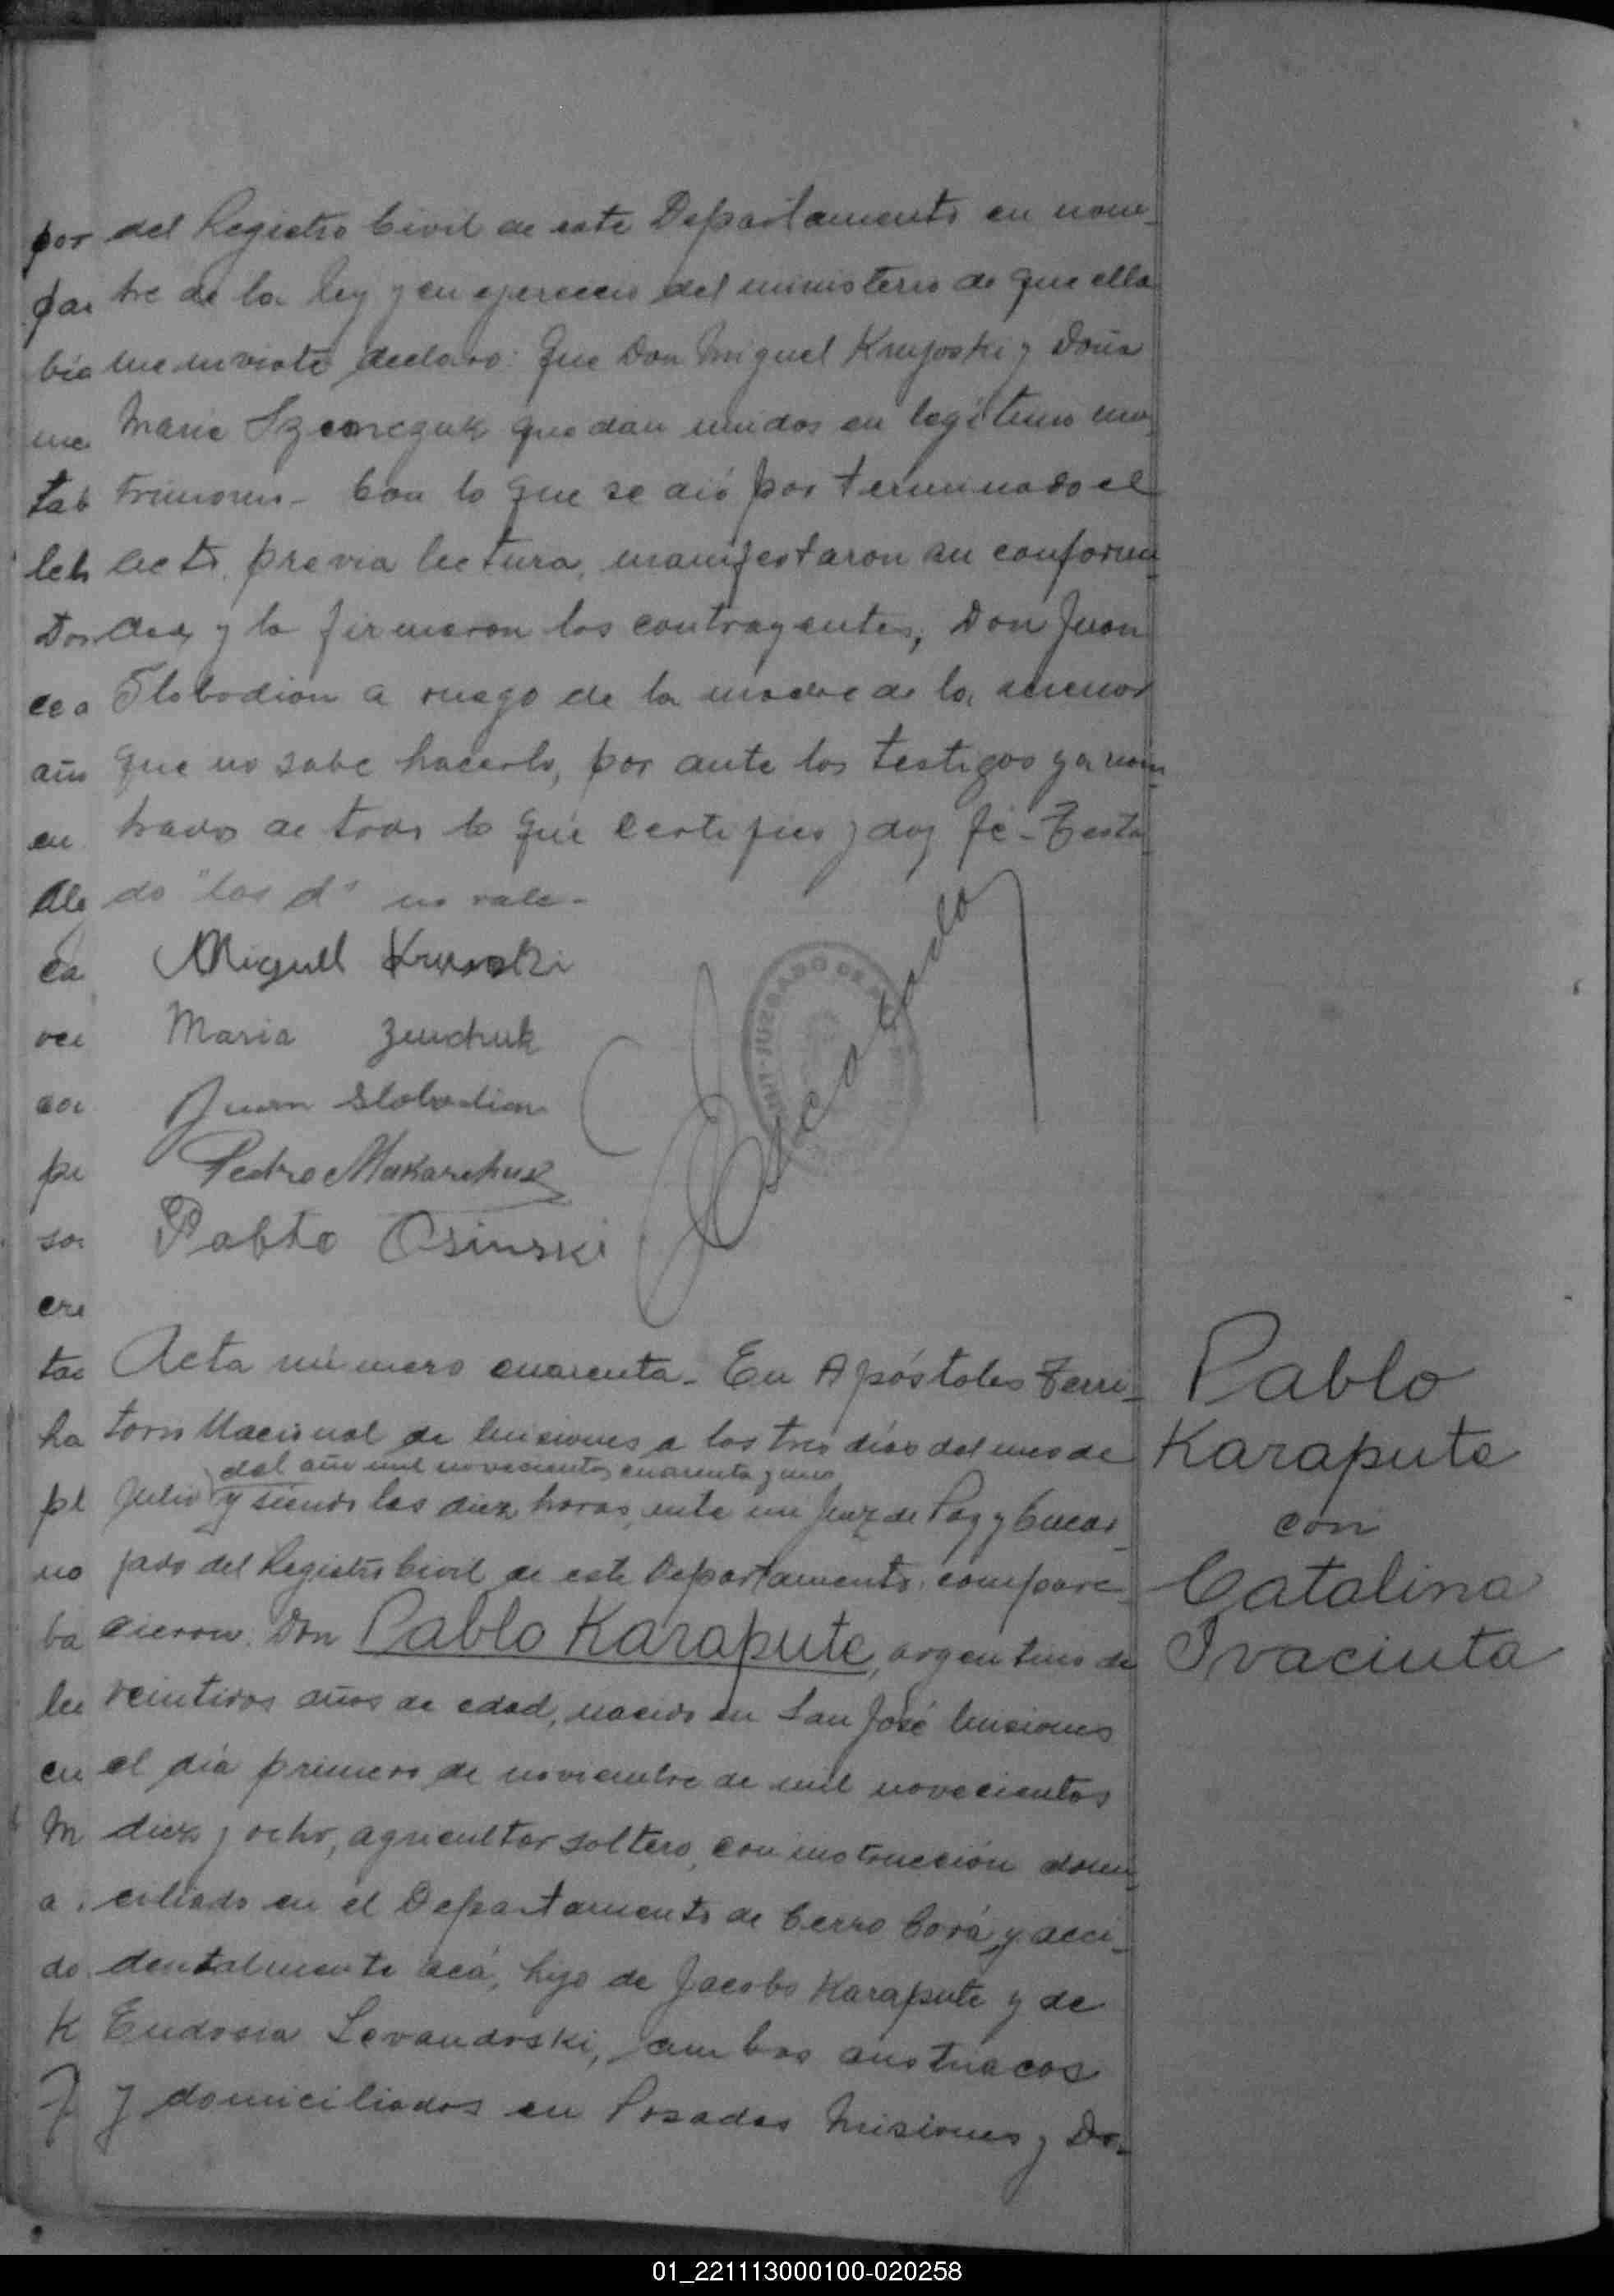 del Registro Civil de este Departamento en nom-
bre de la ley y en ejercicio del ministerio de que ella
me inviste declaro: Que Don Miguel Kruposki y Doña
Maria Szemczuk quedan unidos en legítimo ma-
trimonio - Con lo que se dió por terminado el
acto, previa lectura, manifestaron su conformi-
dad y lo firmaron los contrayentes, Don Juan
Slobodian a ruego de la madre de la menor
que no sabe hacerlo, por ante los testigos ya nom-
brados de todo lo que certifico y doy fé - Testa-
do "los d" no vale -
Miguel
Maria Zemchuk
Juan Slobodian
Pedro Makarchuk
Pablo Osinski
JUZGADO DE
Acta número cuarenta - En Apóstoles Terri-
torio Nacional de Misiones a los tres días del mes de
del año mil novecientos cuarenta y uno
Julio y siendo las diez horas, ante mi Juez de Paz y Encar-
gado del Registro Civil de este Departamento, compare-
cieron Don Pablo Karapute, argentino de
veintidos años de edad, nacido en San José Misiones
el día primero de noviembre de mil novecientos
diez y ocho, agricultor soltero, con instrucción domi-
ciliado en el Departamento de Cerro Corá y acci-
dentalmente acá, hijo de Jacobo Karapute y de
Eudosia Levandoski, ambos austriacos
y domiciliados en Posadas Misiones y Do-
Pablo
Karapute
con
Catalina
Ivaciuta
por
par
bia
me
tab
leb
Dos
cea
año
en
Ale
ca
vei
pe
so
cre
tac
ha
pl
no
ba
le
en
M
a
do
K
01_221113000100-020258